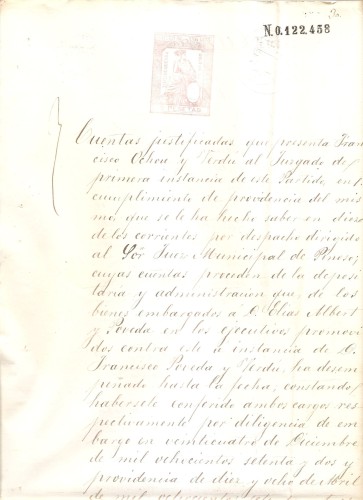 N.0.122,458
PESETAS
Cuentas justificadas que presenta Fran
cisco Ochoa y Verdú al Juzgado de
primera instancia de este Partido, en
cumplimiento de providencia del mis
mo que se le ha hecho saber en diez
de los corrientes por despacho dirigido
al Sör Juez Municipal de Pinoso;
cuyas cuentas proceden de la deposi
taria y administracion que, de los
bienes embargados a D. Elias Albert
y Poveda en los ejecutivos promovi
dos contra este a instancia de D.
Francisco Poveda y Verdú, ha desem
peñado hasta la fecha; constando
habersele conferido ambos cargos res
pectivamente por diligencia de em
bargo en veinticuatro de Diciembre
de mil ochocientos setenta y dos y
providencia de diez y ocho de Abril
de mil ochocientos